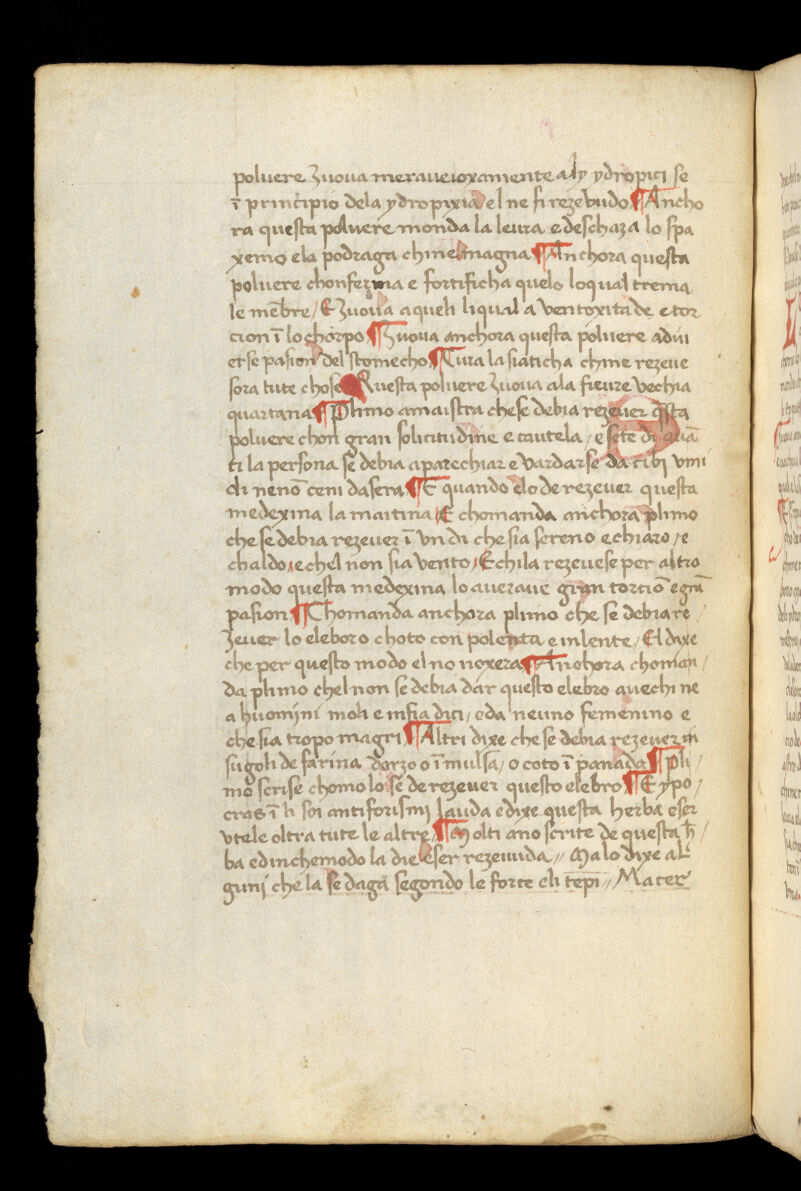 poluere zuoua meraueioxamente aly ydropici se
ī principio dela ydropixia el ne fi rezeuudo ¶ Ancho
ra questa poluere monda la leura e deschaza lo spa
xemo ela podraga chine magna ¶ Anchora questa
poluere chonferma e fortificha quelo loqual trema
le mēbre / E zuoua aqueli liqual a ventoxitade e tor
cion ī lo chorpo ¶ Zuoua anchora questa poluere adui
erse pasion del stomecho ¶ Cura la siaticha chine rezeue
sora tute chose Questa poluere zuoua ala fieure vechia
quartana ¶ Plinio amaistra che se debia rezeuer q̄sta
poluere chon gran solicitudine e cautela / e sete di quā
ti la persona se debia aparechiar e vardarse da cibi vmi
di ne nō ceni da sera ¶ E quando elo de rezeuer questa
medexina la maitina / E chomanda anchora plinio
che se debia rezeuer ī vn di che sia sereno e chiaro / e
chaldo / e chel non sia vento / E chi la rezeuese per altro
modo questa medexina lo auerave gran torciō e grā
pasion ¶ Chomanda anchora plinio che se debia re /
zeuer lo eleboro choto con polenta e in lente / El dixe
che per questo modo el no noxera ¶ Anchora choman /
da plinio chel non se debia dar questo elebro a uechi ne
a huomini moli e infiadici / e da neuno femenino e
che sia tropo magri ¶ Altri dixe che se debia rezeuer in
sugoli de farina dorzo o ī mulsa / o coto ī panada ¶ Pli /
nio scrise chomo lo se de rezeuer questo elebro ¶ E ypo /
cras ī li soi antiforismi lauda e dixe questa herba eser
vtele oltra tute le altre ¶ Molti ano scrite de questa h̄ /
ba ed inche modo la die eser rezeuuda // Ma lo dixe al
guni che la se daga segondo le forte eli tēpi // Macer